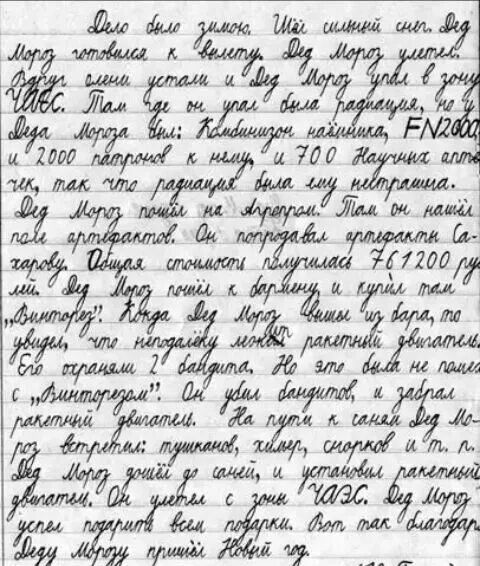 Дело было зимою. Шёл сильный снег. Дед
Мороз готовился к вылету. Дед Мороз улетел.
Вдруг олени устали и Дед Мороз упал в зону
ЧАЭС. Там где он упал была радиация, но у
Деда Мороза был: Комбинизон наёмника, FN2000,
и 2000 патронов к нему, и 700 Научных апте
чек, так что радиация была ему нестрашна.
Дед Мороз пошёл на Агропром. Там он нашёл
поле артефактов. Он попродавал артефакты Са-
харову. Общая стоимость получилась 761200 руб
лей. Дед Мороз пошёл к бармену и купил там
„Винторез". Когда Дед Мороз вышы из бара, то
увидел, что неподалёку лежит ракетный двигатель.
Его охраняли 2 бандита. Но это была не помех
с „Винторезом". Он убил бандитов, и забрал
ракетный двигатель. На пути к саням Дед Мо-
роз встретил: тушканов, химер, снорков и т. п.
Дед Мороз дошёл до саней, и установил ракетный
двигатель. Он улетел с зоны ЧАЭС. Дед Мороз
успел подарить всем подарки. Вот так благодар
Деду Морозу пришёл Новый год.